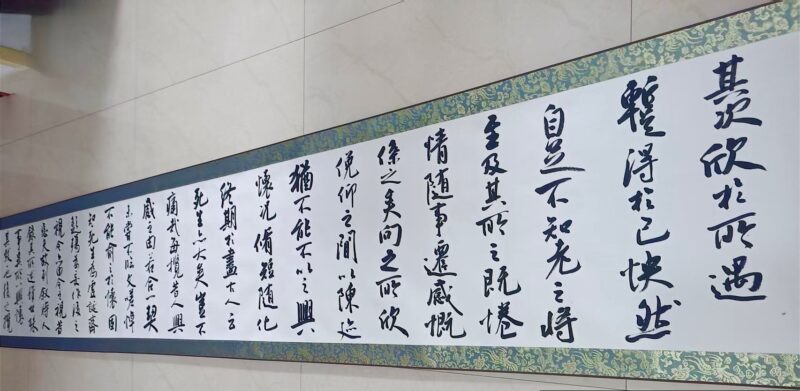 其次欣於所遇
暫得於己快然
自足不知老之將
至及其所之既惓
情隨事遷感慨
係之矣向之所欣
俛仰之間以陳迹
猶不能不以之興
懷況脩短隨化
終期於盡古人云
死生亦大矣豈不
痛哉每攬昔人興
感之由若合一契
未嘗不臨文嗟悼
不能喻之於懷固
知死生為虛誕齊
彭殤為妄作後之
視今亦由今之視昔
悲夫故列敘時人
錄其所述雖世殊
事異所以興懷
其致一也後之攬